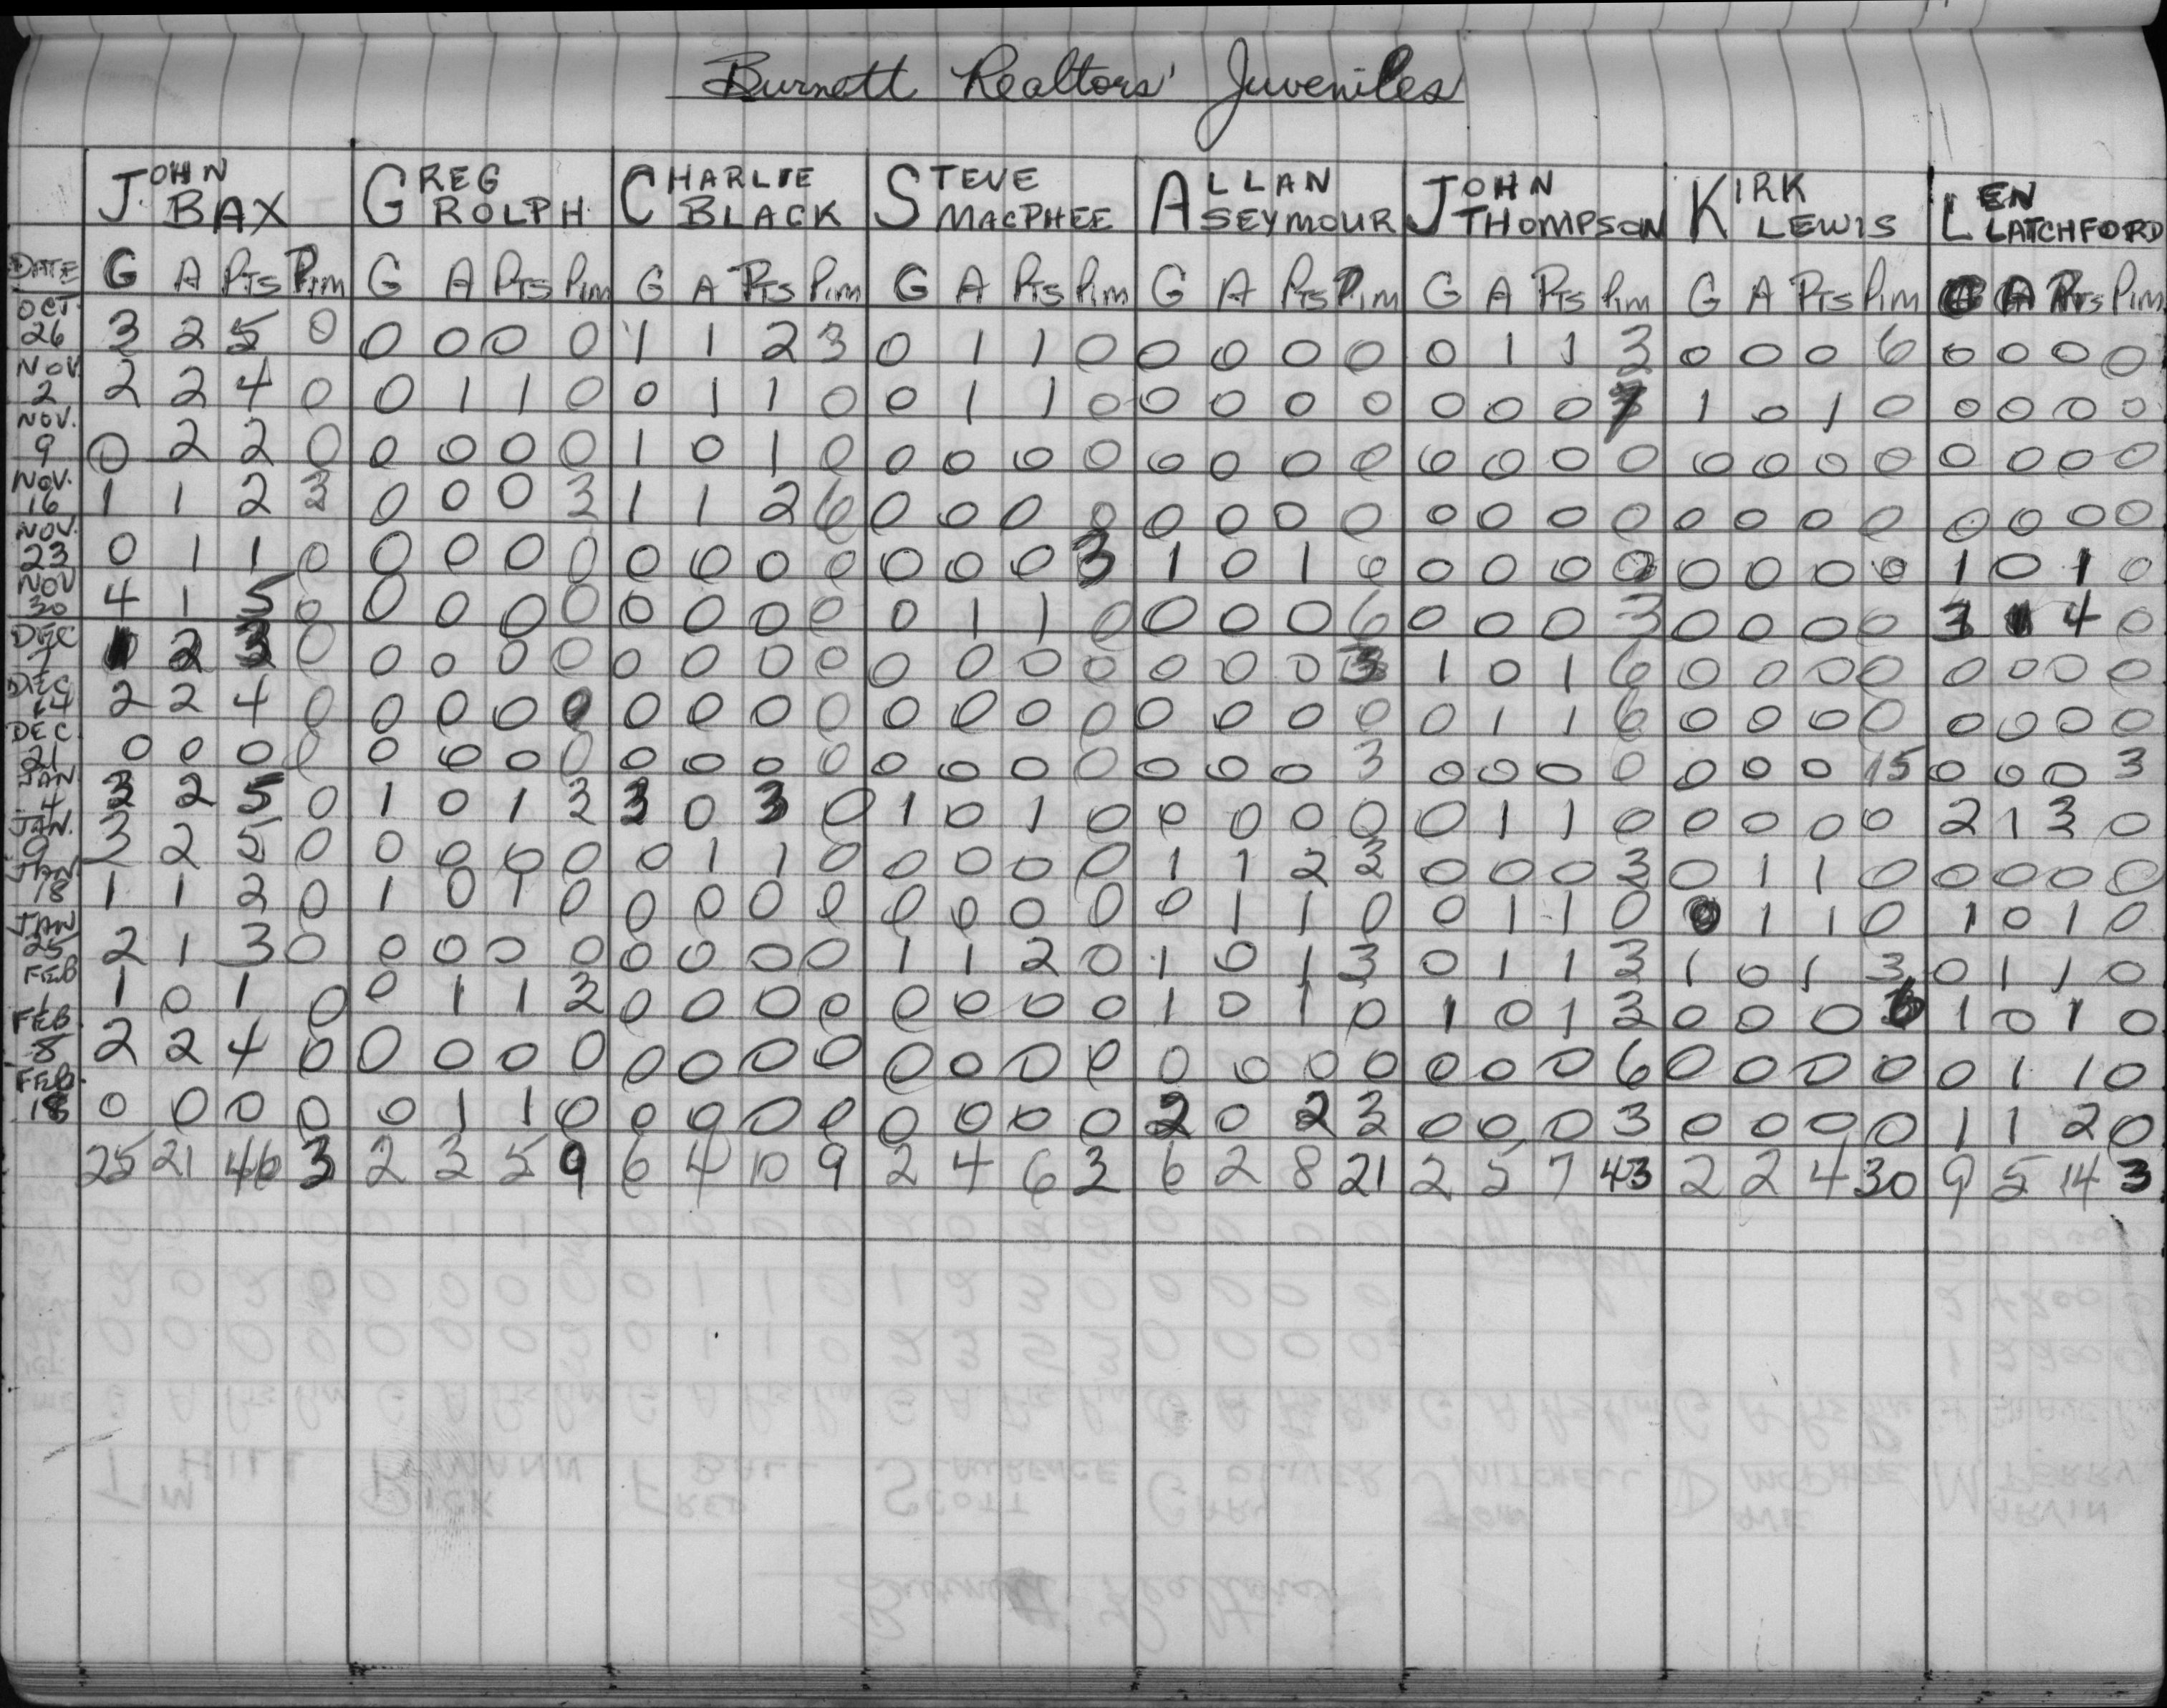 Burnett Realtors' Juveniles
JOHN BAX GREG ROLPH CHARLIE BLACK STEVE MACPHEE ALLAN SEYMOUR JOHN THOMPSON KIRK LEWIS LEN LATCHFORD
DATE G A PTS PIM G A PTS PIM G A PTS PIM G A PTS PIM G A PTS PIM G A PTS PIM G A PTS PIM G A PTS PIM
OCT. 26 3 2 5 0 0 0 0 0 1 1 2 3 0 1 1 0 0 0 0 0 0 1 1 3 0 0 0 6 0 0 0 0
NOV. 2 2 2 4 0 0 1 1 0 0 1 1 0 0 1 1 0 0 0 0 0 0 0 0 7 1 0 1 0 0 0 0 0
NOV. 9 0 2 2 0 0 0 0 0 1 0 1 0 0 0 0 0 0 0 0 0 0 0 0 0 0 0 0 0 0 0 0 0
NOV. 16 1 1 2 3 0 0 0 3 1 1 2 6 0 0 0 0 0 0 0 0 0 0 0 0 0 0 0 0 0 0 0 0
NOV. 23 0 1 1 0 0 0 0 0 0 0 0 0 0 0 0 3 1 0 1 0 0 0 0 0 0 0 0 0 1 0 1 0
NOV 30 4 1 5 0 0 0 0 0 0 0 0 0 0 1 1 0 0 0 0 6 0 0 0 3 0 0 0 0 3 1 4 0
DEC 7 1 2 3 0 0 0 0 0 0 0 0 0 0 0 0 0 0 0 0 3 1 0 1 6 0 0 0 0 0 0 0 0
DEC 14 2 2 4 0 0 0 0 0 0 0 0 0 0 0 0 0 0 0 0 0 0 1 1 6 0 0 0 0 0 0 0 0
DEC. 21 0 0 0 0 0 0 0 0 0 0 0 0 0 0 0 0 0 0 0 3 0 0 0 0 0 0 0 15 0 0 0 3
JAN 4 3 2 5 0 1 0 1 3 3 0 3 0 1 0 1 0 0 0 0 0 0 1 1 0 0 0 0 0 2 1 3 0
JAN. 9 3 2 5 0 0 0 0 0 0 1 1 0 0 0 0 0 1 1 2 3 0 0 0 3 0 1 1 0 0 0 0 0
JAN 18 1 1 2 0 1 0 1 0 0 0 0 0 0 0 0 0 0 1 1 0 0 1 1 0 0 1 1 0 1 0 1 0
JAN 25 2 1 3 0 0 0 0 0 0 0 0 0 1 1 2 0 1 0 1 3 0 1 1 3 1 0 1 3 0 1 1 0
FEB 1 1 0 1 0 0 1 1 3 0 0 0 0 0 0 0 0 1 0 1 0 1 0 1 3 0 0 0 6 1 0 1 0
FEB 8 2 2 4 0 0 0 0 0 0 0 0 0 0 0 0 0 0 0 0 0 0 0 0 6 0 0 0 0 0 1 1 0
FEB. 18 0 0 0 0 0 1 1 0 0 0 0 0 0 0 0 0 2 0 2 3 0 0 0 3 0 0 0 0 1 1 2 0
25 21 46 3 2 3 5 9 6 4 10 9 2 4 6 3 6 2 8 21 2 5 7 43 2 2 4 30 9 5 14 3